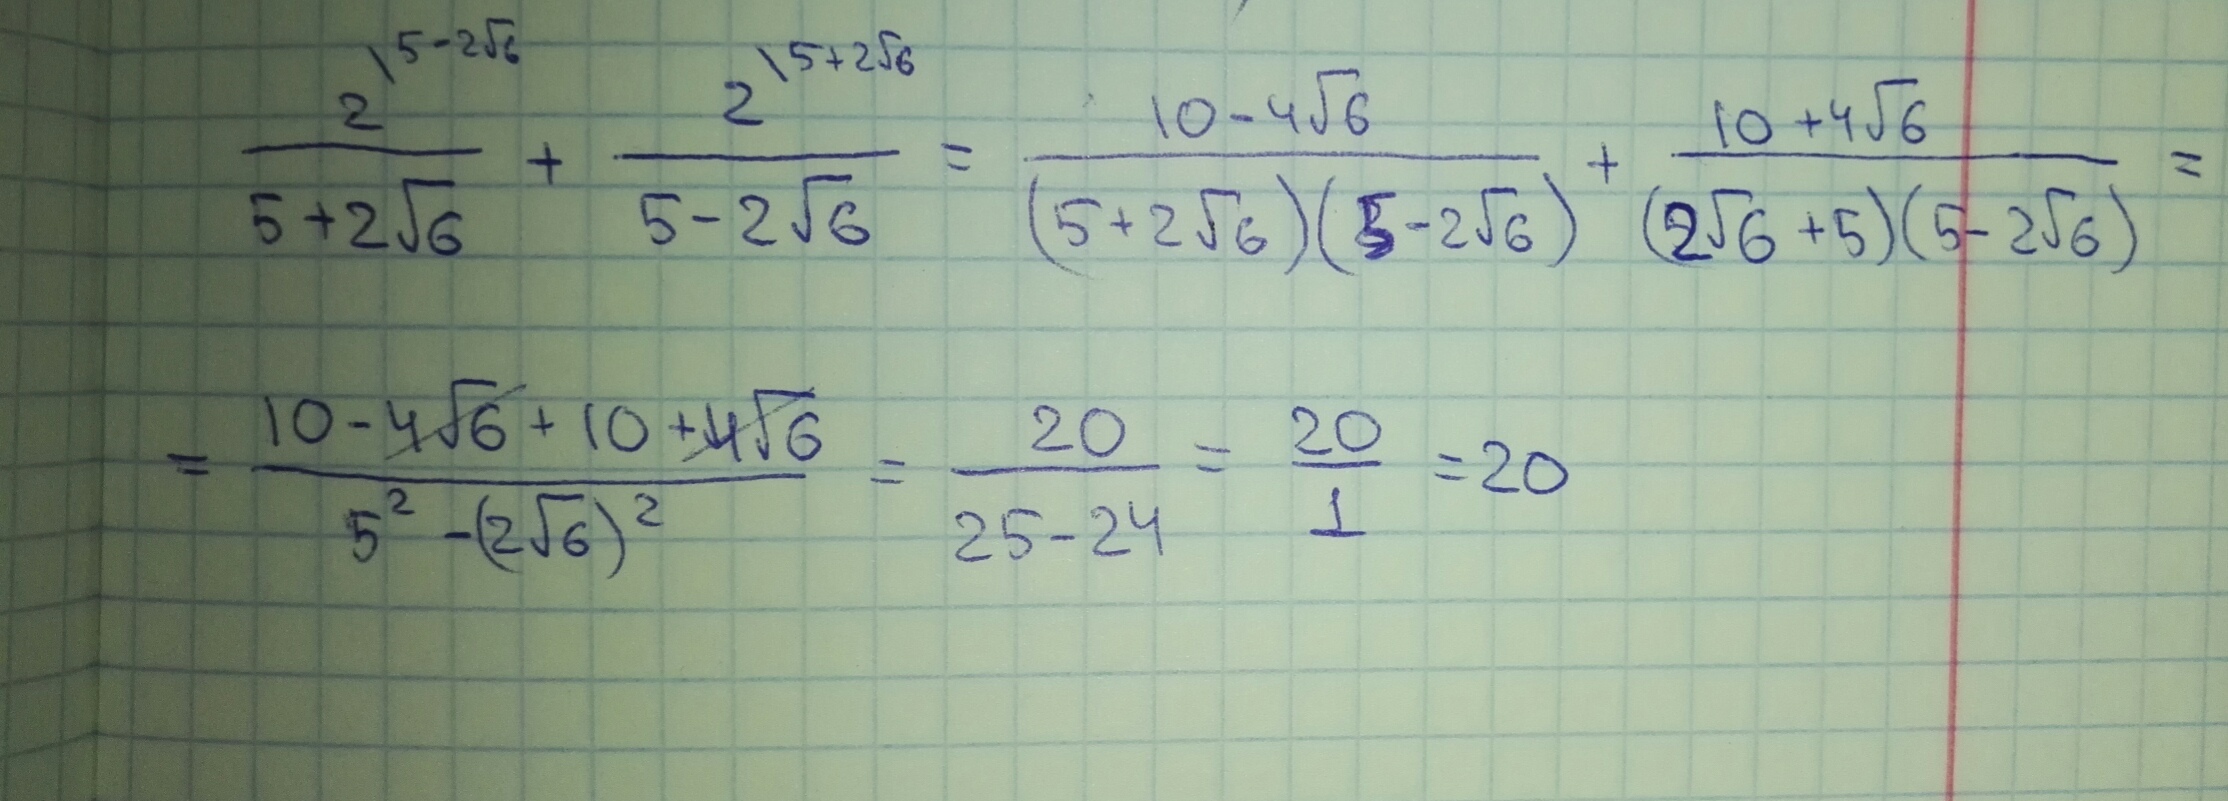 2^{\5-2√6}/(5+2√6) + 2^{\5+2√6}/(5-2√6) = (10-4√6)/((5+2√6)(5-2√6)) + (10+4√6)/((2√6+5)(5-2√6)) =
= (10-4√6+10+4√6)/(5²-(2√6)²) = 20/(25-24) = 20/1 =20